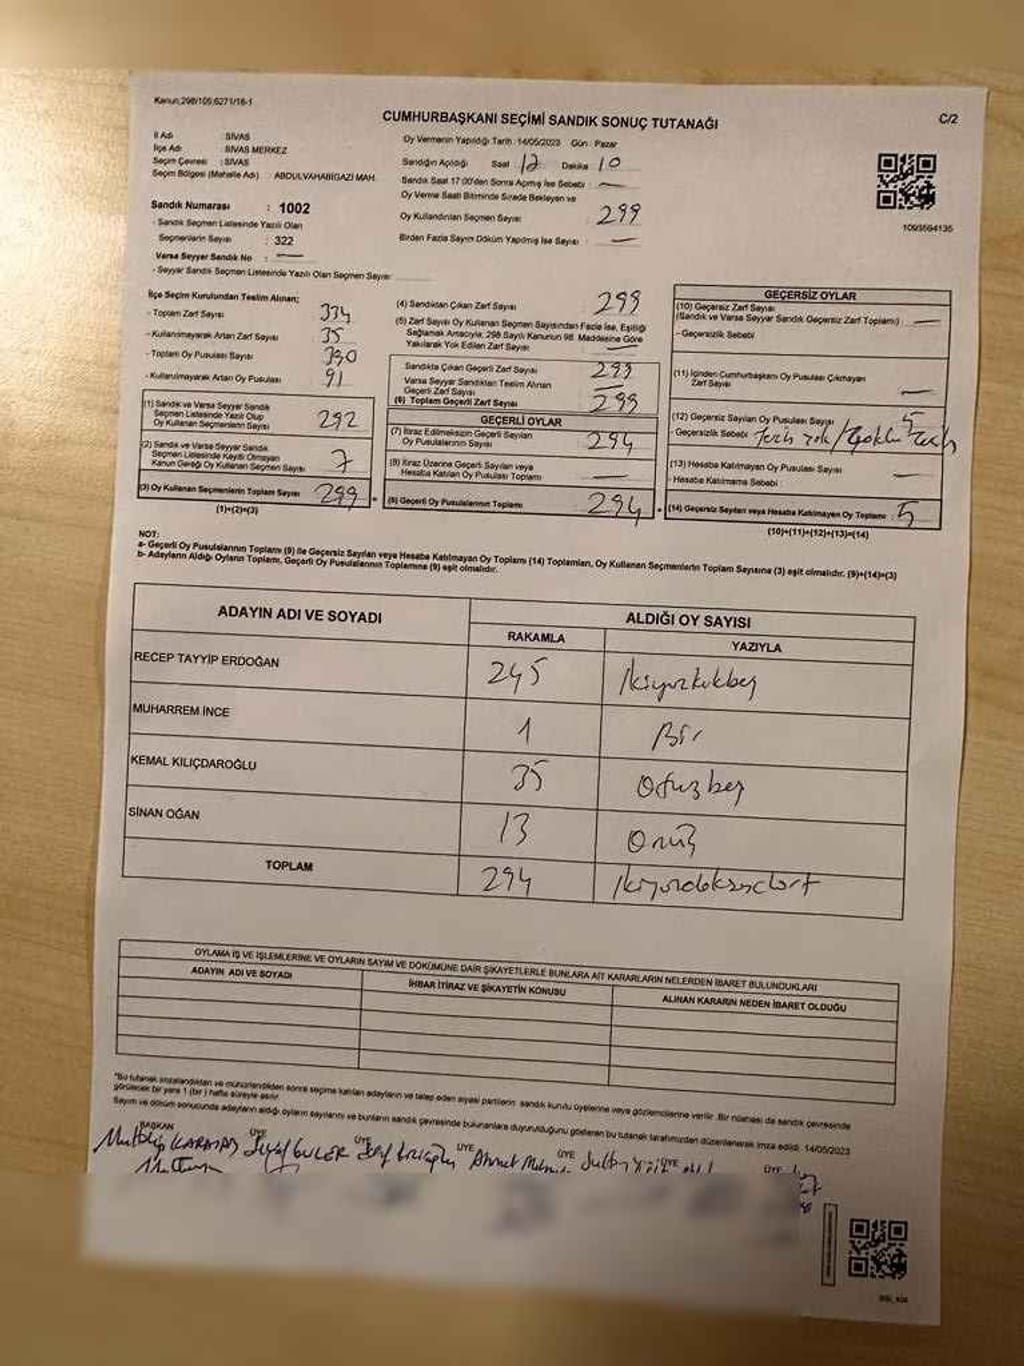 Kanun;298/105,6271/16-1
CUMHURBAŞKANI SEÇİMİ SANDIK SONUÇ TUTANAĞI
C/2
İl Adı : SİVAS
İlçe Adı : SİVAS MERKEZ
Seçim Çevresi : SİVAS
Seçim Bölgesi (Mahalle Adı) : ABDULVAHABİGAZİ MAH.
Sandık Numarası : 1002
- Sandık Seçmen Listesinde Yazılı Olan
Seçmenlerin Sayısı : 322
Varsa Seyyar Sandık No : —
- Seyyar Sandık Seçmen Listesinde Yazılı Olan Seçmen Sayısı:
Oy Vermenin Yapıldığı Tarih : 14/05/2023 Gün : Pazar
Sandığın Açıldığı Saat 17 Dakika 10
Sandık Saat 17:00'den Sonra Açılmış İse Sebebi : —
Oy Verme Saati Bitiminde Sırada Bekleyen ve
Oy Kullandırılan Seçmen Sayısı 299
Birden Fazla Sayım Döküm Yapılmış İse Sayısı : —
1093594135
İlçe Seçim Kurulundan Teslim Alınan;
- Toplam Zarf Sayısı 334
- Kullanılmayarak Artan Zarf Sayısı 35
- Toplam Oy Pusulası Sayısı 390
- Kullanılmayarak Artan Oy Pusulası 91
(1) Sandık ve Varsa Seyyar Sandık
Seçmen Listesinde Yazılı Olup
Oy Kullanan Seçmenlerin Sayısı 292
(2) Sandık ve Varsa Seyyar Sandık
Seçmen Listesinde Kayıtlı Olmayan
Kanun Gereği Oy Kullanan Seçmen Sayısı 7
(3) Oy Kullanan Seçmenlerin Toplam Sayısı 299
(1)+(2)=(3)
(4) Sandıktan Çıkan Zarf Sayısı 299
(5) Zarf Sayısı Oy Kullanan Seçmen Sayısından Fazla İse, Eşitliği
Sağlamak Amacıyla, 298 Sayılı Kanunun 98. Maddesine Göre
Yakılarak Yok Edilen Zarf Sayısı —
Sandıkta Çıkan Geçerli Zarf Sayısı 299
Varsa Seyyar Sandıktan Teslim Alınan
Geçerli Zarf Sayısı —
(6) Toplam Geçerli Zarf Sayısı 299
GEÇERLİ OYLAR
(7) İtiraz Edilmeksizin Geçerli Sayılan
Oy Pusulalarının Sayısı 294
(8) İtiraz Üzerine Geçerli Sayılan veya
Hesaba Katılan Oy Pusulası Toplamı —
(9) Geçerli Oy Pusulalarının Toplamı 294
GEÇERSİZ OYLAR
(10) Geçersiz Zarf Sayısı
(Sandık ve Varsa Seyyar Sandık Geçersiz Zarf Toplamı) : —
- Geçersizlik Sebebi
(11) İçinden Cumhurbaşkanı Oy Pusulası Çıkmayan
Zarf Sayısı —
(12) Geçersiz Sayılan Oy Pusulası Sayısı 5
- Geçersizlik Sebebi
(13) Hesaba Katılmayan Oy Pusulası Sayısı —
- Hesaba Katılmama Sebebi :
(14) Geçersiz Sayılan veya Hesaba Katılmayan Oy Toplamı : 5
(10)+(11)+(12)+(13)=(14)
NOT:
a- Geçerli Oy Pusulalarının Toplamı (9) ile Geçersiz Sayılan veya Hesaba Katılmayan Oy Toplamı (14) Toplamları, Oy Kullanan Seçmenlerin Toplam Sayısına (3) eşit olmalıdır. (9)+(14)=(3)
b- Adayların Aldığı Oyların Toplamı, Geçerli Oy Pusulalarının Toplamına (9) eşit olmalıdır.
ADAYIN ADI VE SOYADI ALDIĞI OY SAYISI
RAKAMLA YAZIYLA
RECEP TAYYİP ERDOĞAN 245 İkiyüzkırkbeş
MUHARREM İNCE 1 Bir
KEMAL KILIÇDAROĞLU 35 Otuzbeş
SİNAN OĞAN 13 Onüç
TOPLAM 294 İkiyüzdoksandört
OYLAMA İŞ VE İŞLEMLERİNE VE OYLARIN SAYIM VE DÖKÜMÜNE DAİR ŞİKAYETLERLE BUNLARA AİT KARARLARIN NELERDEN İBARET BULUNDUKLARI
ADAYIN ADI VE SOYADI İHBAR İTİRAZ VE ŞİKAYETİN KONUSU ALINAN KARARIN NEDEN İBARET OLDUĞU
"Bu tutanak imzalandıktan ve mühürlendikten sonra seçime katılan adayların ve talep eden siyasi partilerin sandık kurulu üyelerine veya gözlemcilerine verilir. Bir nüshası da sandık çevresinde
görülecek bir yere 1 (bir) hafta süreyle asılır.
Sayım ve döküm sonucunda adayların aldığı oyların sayılarını ve bunların sandık çevresinde bulunanlara duyurulduğunu gösteren bu tutanak tarafımızdan düzenlenerek imza edildi. 14/05/2023
BAŞKAN ÜYE ÜYE ÜYE ÜYE ÜYE ÜYE